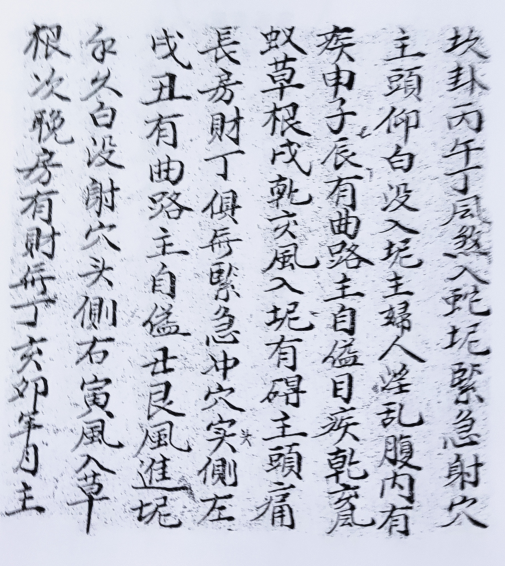 坎卦丙午丁風煞入蛇坭緊急射穴
主頭仰白没入坭主婦人淫乱腹内有
疾申子辰有曲路主自縊目疾乾亥風
蚁草根戌乾亥風入坭有碍主頭痛
長房財丁俱無緊急冲穴实側左
戌丑有曲路主自縊丑艮風進坭
水久白没射穴头側右寅風入草
根次晚房有財無丁亥卯年月主